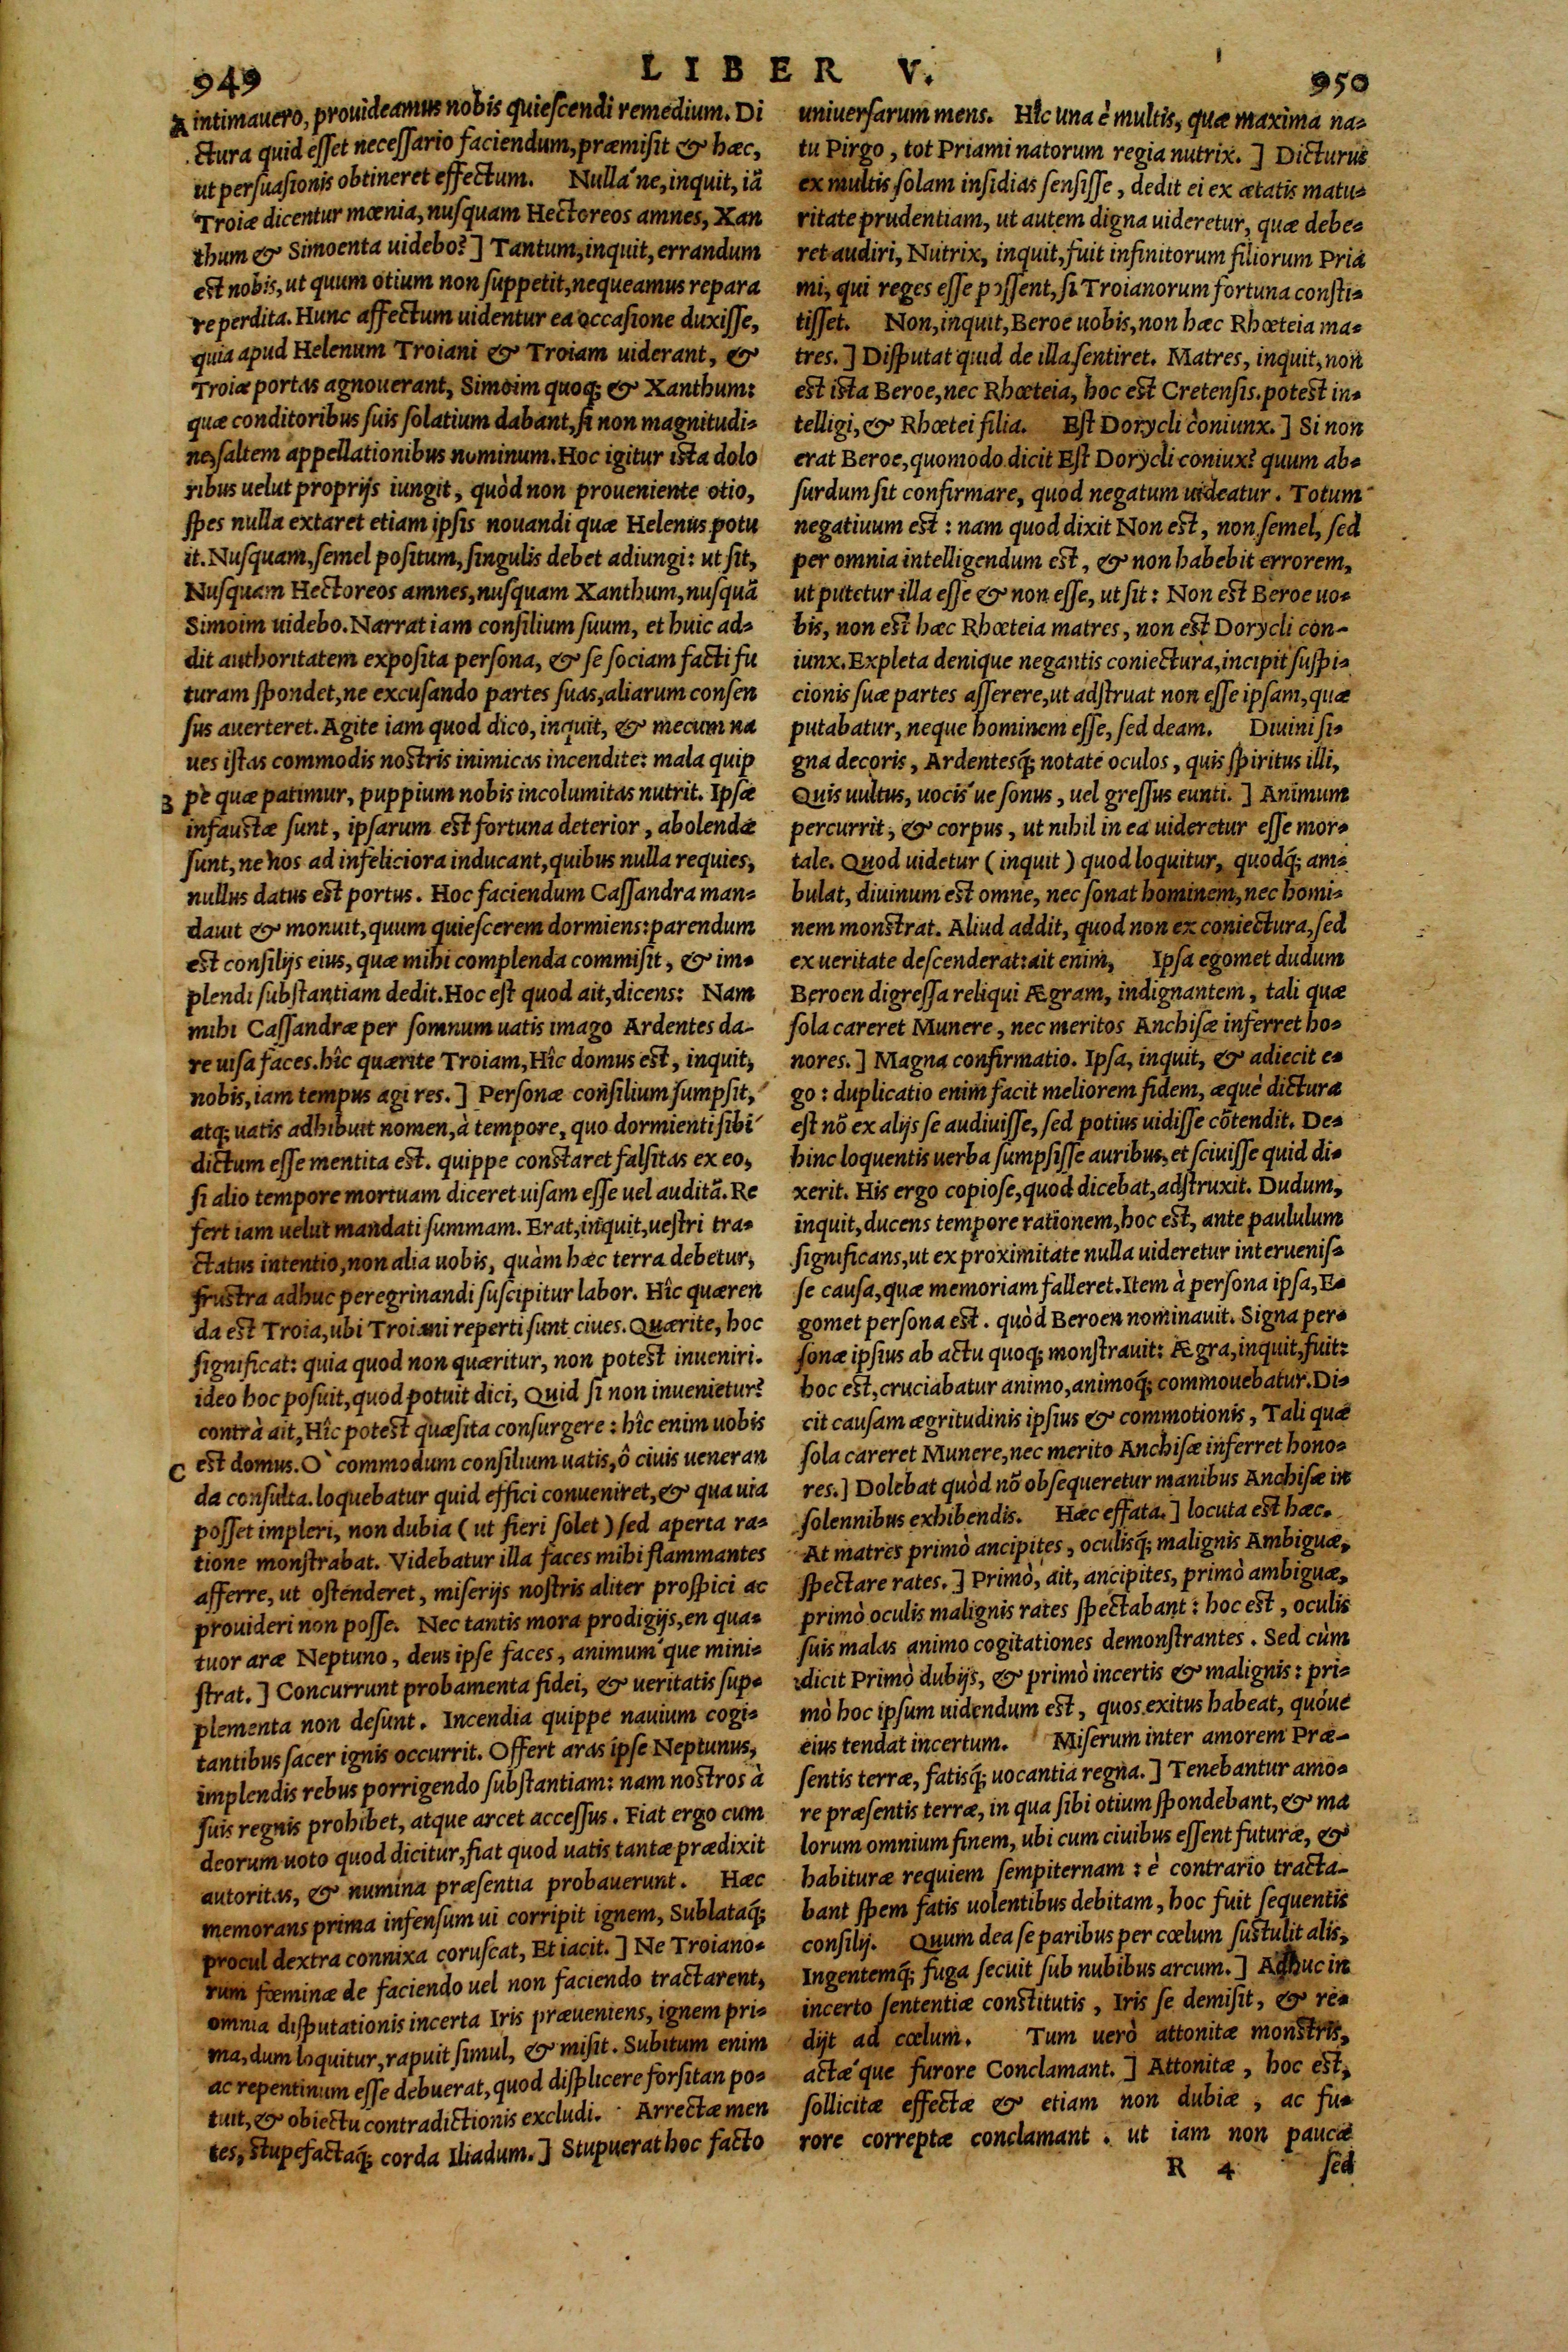 949
LIBER V.
950
A intimauero, prouideamus nobis quiescendi remedium. Di
ctura quid esset necessario faciendum, præmisit & hæc,
ut persuasionis obtineret effectum. Nulla´ne, inquit, iã
Troiæ dicentur mœnia, nusquam Hectoreos amnes, Xan
thum & Simoenta uidebo? ] Tantum, inquit, errandum
est nobis, ut quum otium non suppetit, nequeamus repara
re perdita. Hunc affectum uidentur ea occasione duxisse,
quia apud Helenum Troiani & Troiam uiderant, &
Troiæ portas agnouerant, Simoim quoq; & Xanthum:
quæ conditoribus suis solatium dabant, si non magnitudi=
ne, saltem appellationibus nominum. Hoc igitur ista dolo
ribus uelut proprijs iungit, quòd non proueniente otio,
spes nulla extaret etiam ipsis nouandi quæ Helenus potu
it. Nusquam, semel positum, singulis debet adiungi: ut sit,
Nusquam Hectoreos amnes, nusquam Xanthum, nusquã
Simoim uidebo. Narrat iam consilium suum, et huic ad=
dit authoritatem exposita persona, & se sociam facti fu
turam spondet, ne excusando partes suas, aliarum consen
sus auerteret. Agite iam quod dico, inquit, & mecum na
ues istas commodis nostris inimicas incendite: mala quip
B pe quæ patimur, puppium nobis incolumitas nutrit. Ipsæ
infaustæ sunt, ipsarum est fortuna deterior, abolendæ
sunt, ne nos ad infeliciora inducant, quibus nulla requies,
nullus datus est portus. Hoc faciendum Cassandra man=
dauit & monuit, quum quiescerem dormiens: parendum
est consilijs eius, quæ mihi complenda commisit, & im=
plendi substantiam dedit. Hoc est quod ait, dicens: Nam
mihi Cassandræ per somnum uatis imago Ardentes da-
re uisa faces. hîc quærite Troiam, Hîc domus est, inquit,
nobis, iam tempus agi res. ] Personæ consilium sumpsit,
atq; uatis adhibuit nomen, à tempore, quo dormienti sibi
dictum esse mentita est. quippe constaret falsitas ex eo,
si alio tempore mortuam diceret uisam esse uel auditã. Re
fert iam uelut mandati summam. Erat, inquit, uestri tra=
ctatus intentio, non alia uobis, quàm hæc terra debetur,
frustra adhuc peregrinandi suscipitur labor. Hîc quæren
da est Troia, ubi Troiani reperti sunt ciues. Quærite, hoc
significat: quia quod non quæritur, non potest inueniri.
ideo hoc posuit, quod potuit dici, Quid si non inuenietur?
contrà ait, Hîc potest quæsita consurgere: hîc enim uobis
C est domus. O` commodum consilium uatis, ô ciuis ueneran
da consulta. loquebatur quid effici conueniret, & qua uia
posset impleri, non dubia ( ut fieri solet ) sed aperta ra=
tione monstrabat. Videbatur illa faces mihi flammantes
afferre, ut ostenderet, miserijs nostris aliter prospici ac
prouideri non posse. Nec tantis mora prodigijs, en qua=
tuor aræ Neptuno, deus ipse faces, animum´que mini=
strat. ] Concurrunt probamenta fidei, & ueritatis sup=
plementa non desunt. Incendia quippe nauium cogi=
tantibus sacer ignis occurrit. Offert aras ipse Neptunus,
implendis rebus porrigendo substantiam: nam nostros à
suis regnis prohibet, atque arcet accessus. Fiat ergo cum
deorum uoto quod dicitur, fiat quod uatis tantæ prædixit
autoritas, & numina præsentia probauerunt. Hæc
memorans prima infensum ui corripit ignem, Sublataq́;
procul dextra connixa coruscat, Et iacit. ] Ne Troiano=
rum fœminæ de faciendo uel non faciendo tractarent,
omnia disputationis incerta Iris præueniens, ignem pri=
ma, dum loquitur, rapuit simul, & misit. Subitum enim
ac repentinum esse debuerat, quod displicere forsitan po=
tuit, & obiectu contradictionis excludi. Arrectæ men
tes, stupefactaq́; corda Iliadum. ] Stupuerat hoc facto
uniuersarum mens. Hîc una è multis, quæ maxima na=
tu Pirgo, tot Priami natorum regia nutrix. ] Dicturus
ex multis solam insidias sensisse, dedit ei ex ætatis matu=
ritate prudentiam, ut autem digna uideretur, quæ debe=
ret audiri, Nutrix, inquit, fuit infinitorum filiorum Pria
mi, qui reges esse possent, si Troianorum fortuna consti=
tisset. Non, inquit, Beroe uobis, non hæc Rhœteia ma=
tres. ] Disputat quid de illa sentiret. Matres, inquit, non
est ista Beroe, nec Rhœteia, hoc est Cretensis. potest in=
telligi, & Rhœtei filia. Est Dorycli coniunx. ] Si non
erat Beroe, quomodo dicit Est Dorycli coniux? quum ab=
surdum sit confirmare, quod negatum uideatur. Totum
negatiuum est: nam quod dixit Non est, non semel, sed
per omnia intelligendum est, & non habebit errorem,
ut putetur illa esse & non esse, ut sit: Non est Beroe uo=
bis, non est hæc Rhœteia matres, non est Dorycli con-
iunx. Expleta denique negantis coniectura, incipit suspi=
cionis suæ partes asserere, ut adstruat non esse ipsam, quæ
putabatur, neque hominem esse, sed deam. Diuini si=
gna decoris, Ardentesq́; notate oculos, quis spiritus illi,
Quis uultus, uocis´ue sonus, uel gressus eunti. ] Animum
percurrit, & corpus, ut nihil in ea uideretur esse mor=
tale. Quod uidetur ( inquit ) quod loquitur, quodq́; am=
bulat, diuinum est omne, nec sonat hominem, nec homi=
nem monstrat. Aliud addit, quod non ex coniectura, sed
ex ueritate descenderat: ait enim, Ipsa egomet dudum
Beroen digressa reliqui Ægram, indignantem, tali quæ
sola careret Munere, nec meritos Anchisæ inferret ho=
nores. ] Magna confirmatio. Ipsa, inquit, & adiecit e=
go: duplicatio enim facit meliorem fidem, æquè dictura
est nõ ex alijs se audiuisse, sed potius uidisse cõtendit. De=
hinc loquentis uerba sumpsisse auribus, et sciuisse quid di=
xerit. His ergo copiose, quod dicebat, adstruxit. Dudum,
inquit, ducens tempore rationem, hoc est, ante paululum
significans, ut ex proximitate nulla uideretur interuenis=
se causa, quæ memoriam falleret. Item à persona ipsa, E=
gomet persona est. quòd Beroen nominauit. Signa per=
sonæ ipsius ab actu quoq; monstrauit: Ægra, inquit, fuit:
hoc est, cruciabatur animo, animoq́; commouebatur. Di=
cit causam ægritudinis ipsius & commotionis, Tali quæ
sola careret Munere, nec merito Anchisæ inferret hono=
res. ] Dolebat quòd nõ obsequeretur manibus Anchisæ in
solennibus exhibendis. Hæc effata. ] locuta est hæc.
At matres primò ancipites, oculisq́; malignis Ambiguæ,
spectare rates. ] Primò, ait, ancipites, primò ambiguæ,
primò oculis malignis rates spectabant: hoc est, oculis
suis malas animo cogitationes demonstrantes. Sed cùm
dicit Primò dubijs, & primò incertis & malignis: pri=
mò hoc ipsum uidendum est, quos exitus habeat, quóue
eius tendat incertum. Miserum inter amorem Præ-
sentis terræ, fatisq́; uocantia regna. ] Tenebantur amo=
re præsentis terræ, in qua sibi otium spondebant, & ma
lorum omnium finem, ubi cum ciuibus essent futuræ, &
habituræ requiem sempiternam: è contrario tracta-
bant spem fatis uolentibus debitam, hoc fuit sequentis
consilij. Quum dea se paribus per cœlum sustulit alis,
Ingentemq́; fuga secuit sub nubibus arcum. ] Adhuc in
incerto sententiæ constitutis, Iris se demisit, & re=
dijt ad cœlum. Tum uerò attonitæ monstris,
actæ´que furore Conclamant. ] Attonitæ, hoc est,
sollicitæ effectæ & etiam non dubiæ, ac fu=
rore correptæ conclamant. ut iam non paucæ
R 4 sed